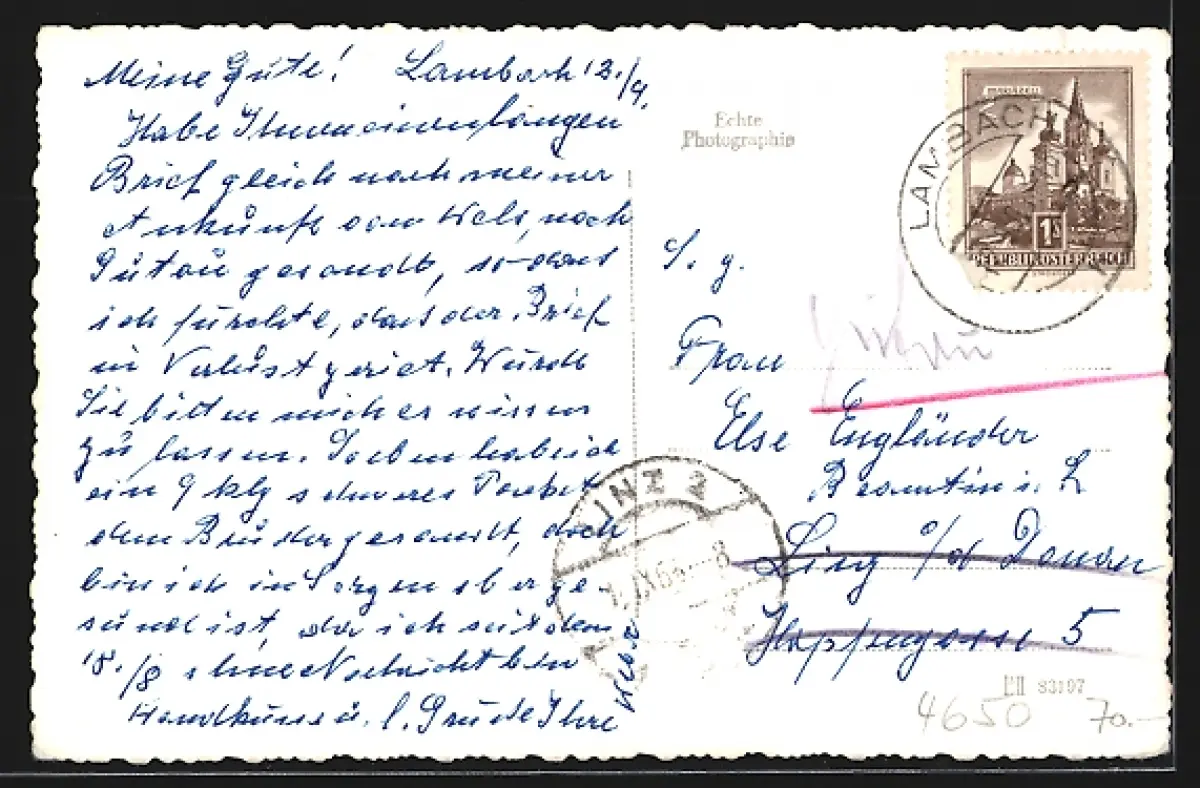 Meine Gute! Lambach 12./9.
Habe Ihnen einen langen
Brief gleich nach meiner
Ankunft von Wels, nach
gesandt, so dass
ich fürchte, dass der Brief
in Verlust geriet. Würde
Sie bitten mich es wissen
zu lassen. Soeben habe ich
ein 9 klg schweres Packet
dem Bruder gesandt, doch
bin ich in Sorgen ob er ge-
sund ist, da ich seit dem
18./8 ohne Nachricht bin
Handküsse u. l. Grüße Ihre
Echte
Photographie
LAMBACH
MARIAZELL
1S
REPUBLIK ÖSTERREICH
S. g.
Frau
Else Engländer
Beamtin i. R
Linz a/d Donau
5
LINZ 2
PII 83107
4650 70.-